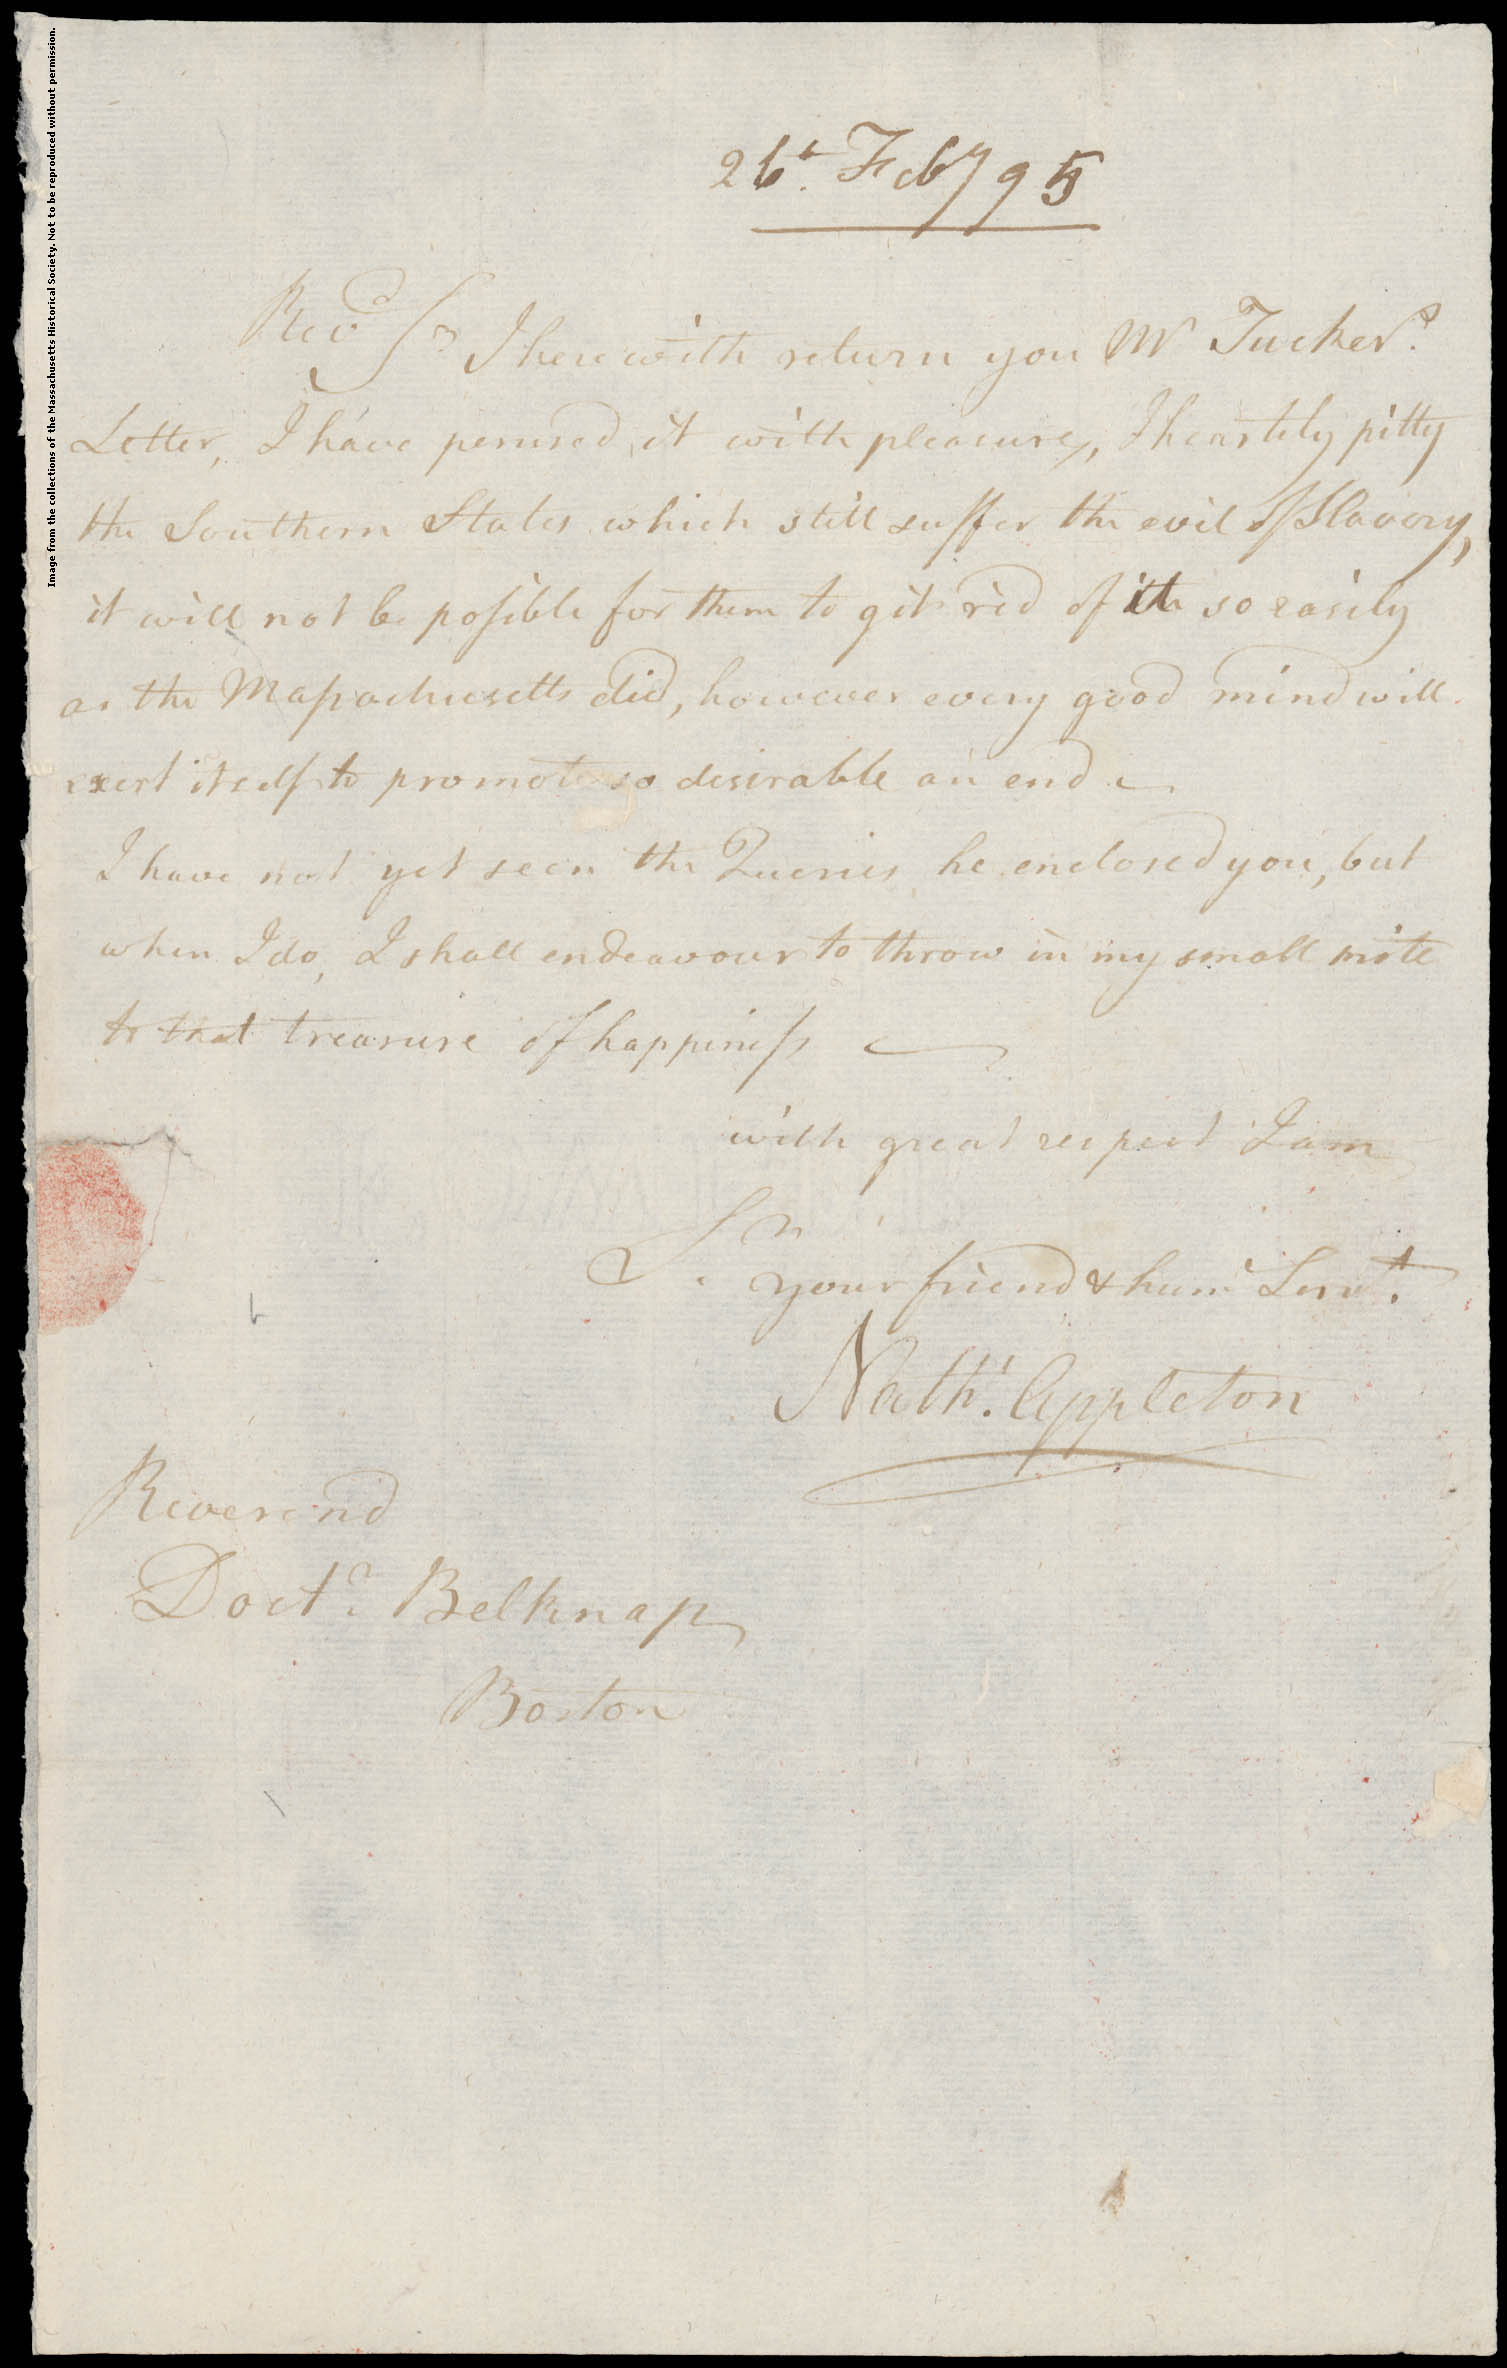 Image from the collections of the Massachusetts Historical Society. Not to be reproduced without permission.
26t. Feby 95
Revd Sr I herewith return you Mr Tuckers.
Letter, I have perused it with pleasure, I heartily pitty
the Southern States which still suffer the evil of Slavery,
it will not be posible for them to git rid of it so easily
as the Massachusetts did, however every good mind will
exert itself to promote so desirable an end
I have not yet seen the Queries he enclosed you, but
when I do, I shall endeavour to throw in my small mite
to that treasure of happiness
with great respect I am
Sr.
your friend & huml Servt.
Nathl. Appleton
Reverend
Doctr. Belknap
Boston